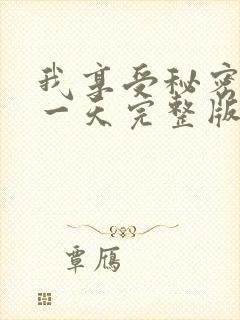 我享受秘密
一天完整版
覃雁